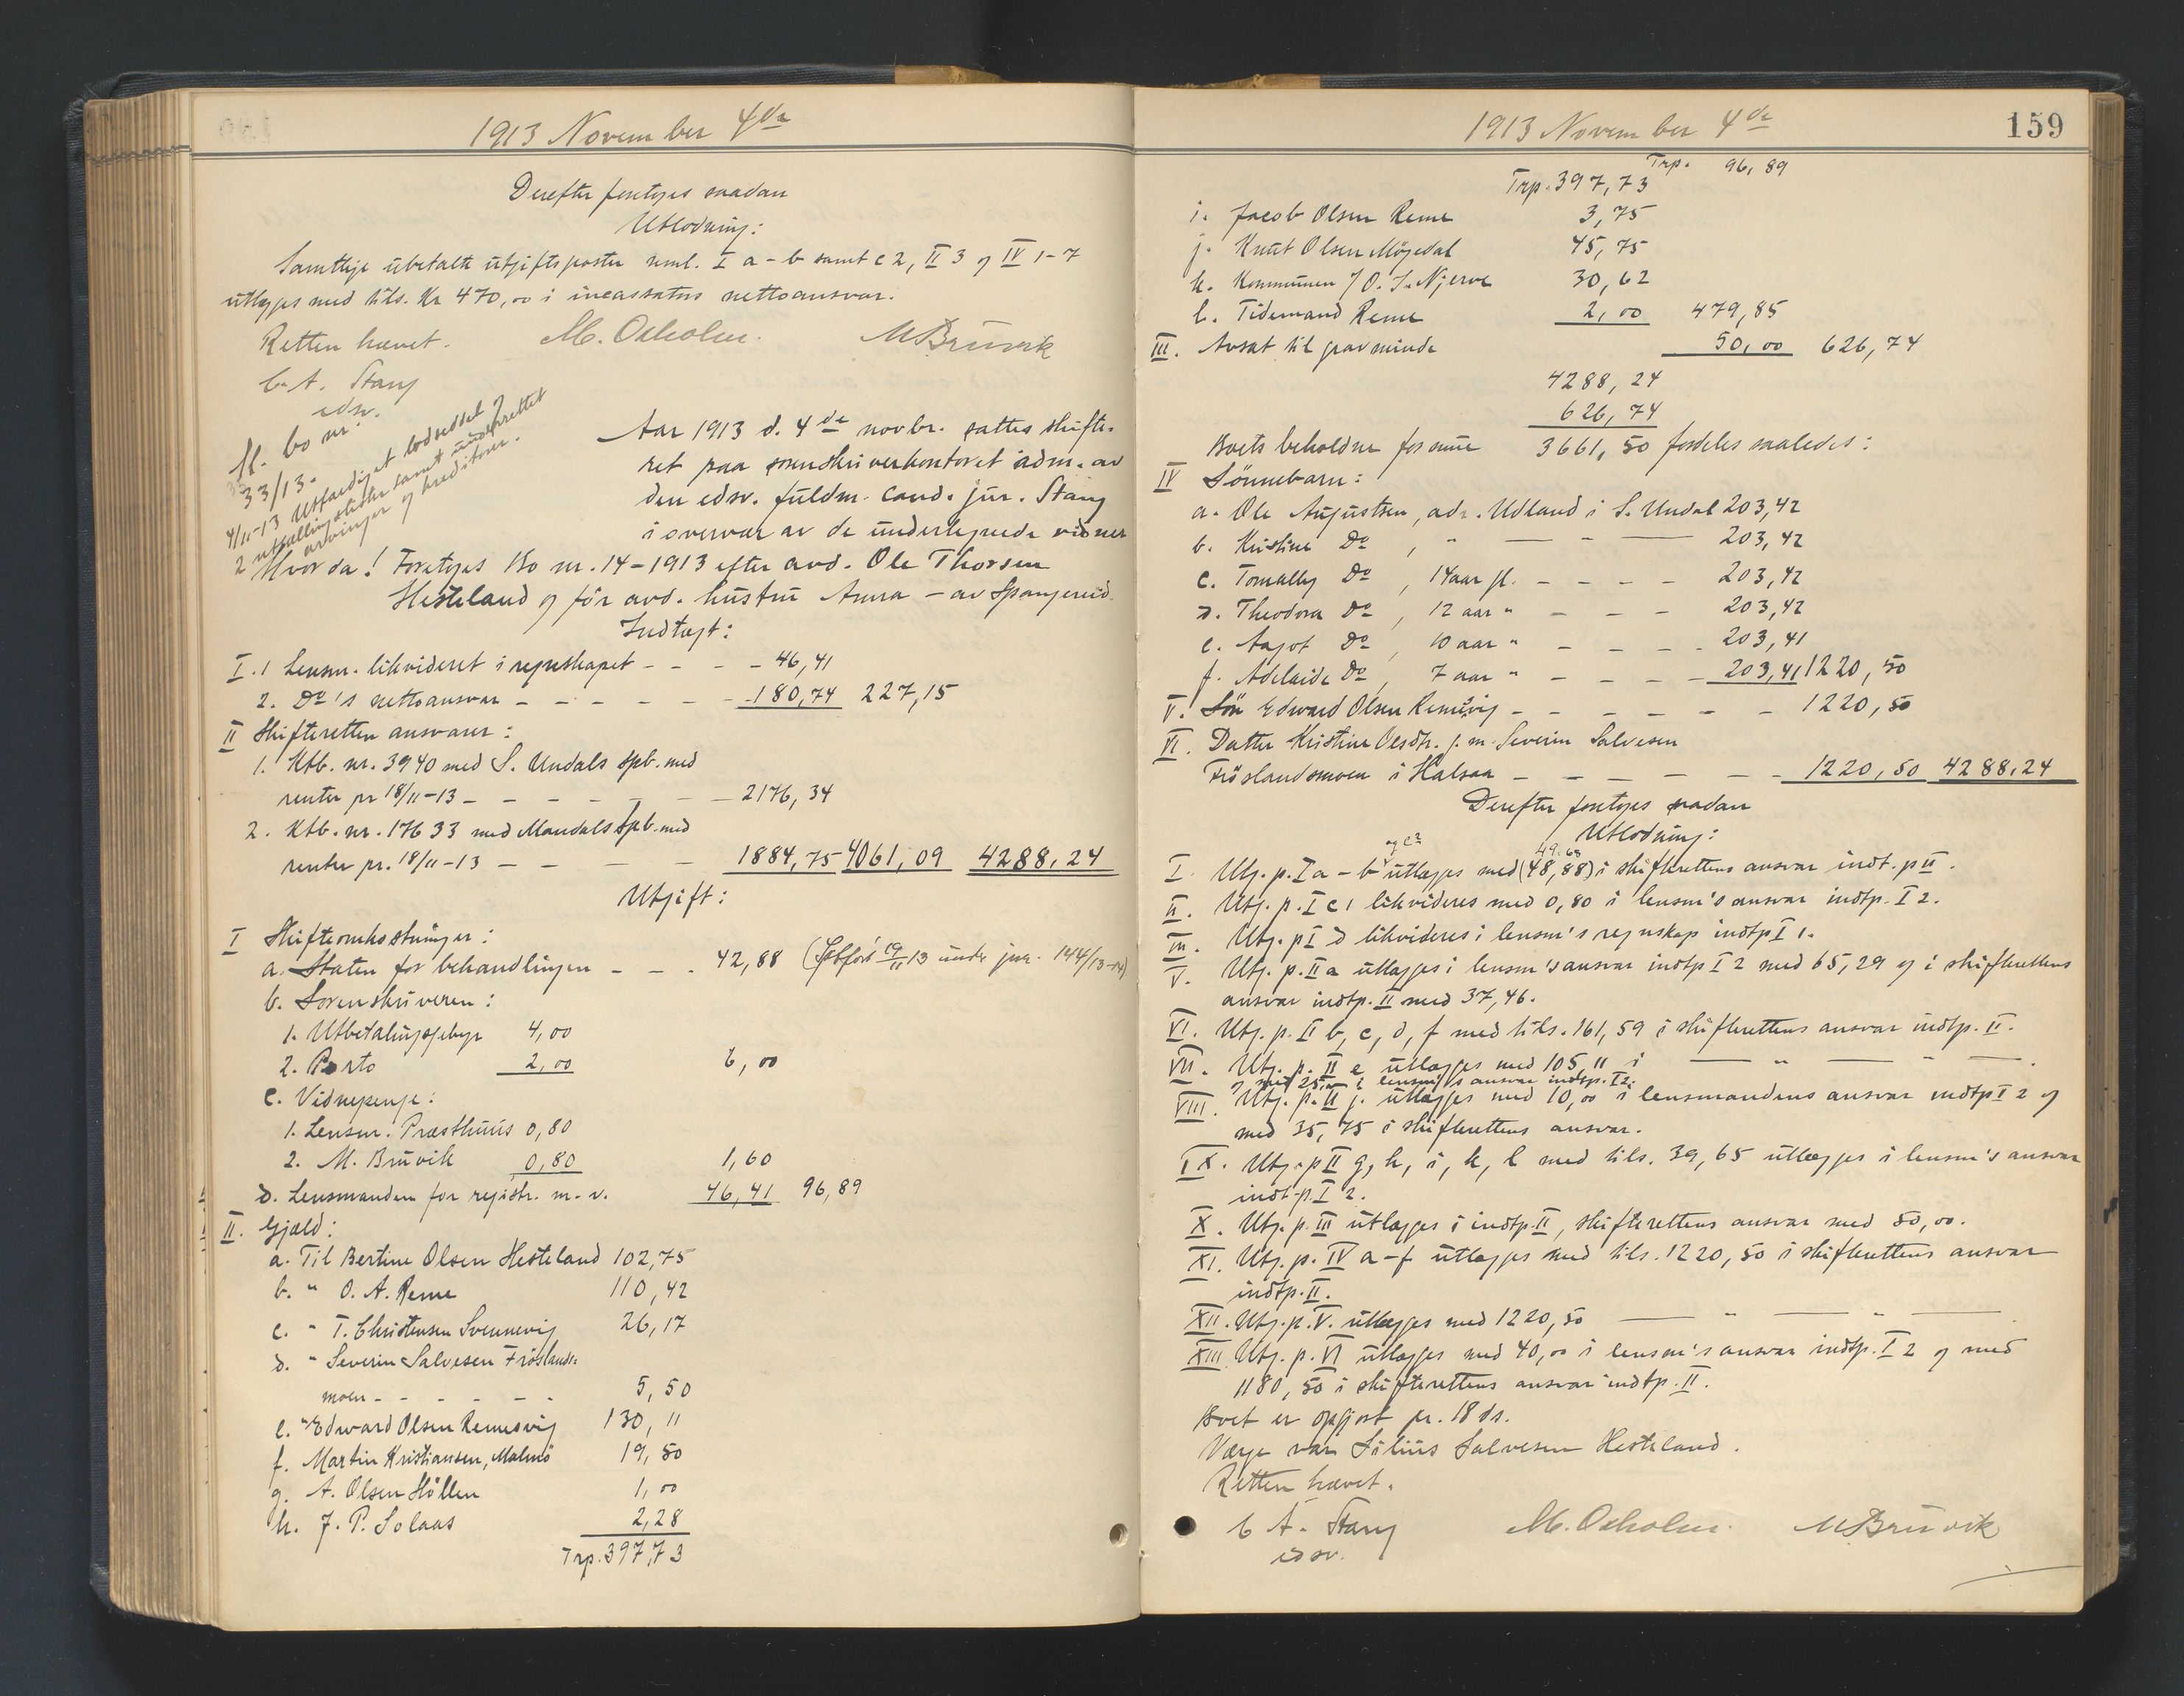 1913 November 4de
Derefter foretoges saadan
Utlodning:
Samtlige ubetalte utgiftsposter neml. I a-b samt c 2, II 3 og IV 1-7
utlægges med tils. Kr 470,00 i incassators nettoansvar.
Retten hævet. M. Oxholm. M Bruvik
C. A. Stang
edsv.
ff. bo nr.
33/13.
4/11-13 Utfærdiget lodseddel og
2 utfallingslister samt underrettet
arvinger og kreditorer.
Aar 1913 d. 4de novbr. sattes skifte-
ret paa sorenskriverkontoret adm. av
den edsv. fuldm. cand. jur. Stang
i overvær av de undertegnede vidner
Hvorda! Foretoges Bo nr. 14-1913 efter avd. Ole Thorsen
Hesteland og før avd. hustru Anna - av Spangereid.
Indtægt:
I. 1 Lensm. likvideret i regnskapet - - - - 46,41
2. Do's nettoansvar - - - - - - 180,74 227,15
II Skifteretten ansvarer:
1. Ktb. nr. 3940 med S. Undals spb. med
renter pr 18/11-13 - - - - - - 2176,34
2. Ktb. nr. 17633 med Mandals Spb. med
renter pr. 18/11-13 - - - - 1884,75 4061,09 4288.24
Utgift:
I Skifteomkostninger:
a. Staten for behandlingen - - - 42,88 (Gebført 19/11 13 under jnr. 144/13-14)
b. Sorenskriveren:
1. Utbetalingsgebyr 4,00
2. Porto 2,00 6,00
c. Vidnepenge:
1. Lensm. Præsthuus 0,80
2. M. Bruvik 0,80 1,60
d. Lensmanden for registr. m. v. 46,41 96,89
II. Gjæld:
a. Til Bertine Olsen Hesteland 102,75
b. " O. A. Reme 110,42
c. " T. Christensen Svennevig 26,17
d. " Severin Salvesen Frøslands-
moen - - - - - - 5,50
e. " Edward Olsen Remesvig 130,11
f. Martin Kristiansen, Malmö 19,50
g. A. Olsen Høllen 1,00
h. J. P. Solaas 2,28
Trp. 397,73
1913 November 4de 159
Trp. 96,89
Trp. 397,73
i. Jacob Olsen Reme 3,75
j. Knut Olsen Møgedal 45,75
k. Kommunen / O. J. Njerve 30,62
l. Tidemand Reme 2,00 479,85
III. Avsat til gravminde 50,00 626,74
4288,24
626,74
Boets beholdne formue 3661,50 fordeles saaledes:
IV Sønnebarn:
a. Ole Augustsen, adr. Udland i S. Undal 203,42
b. Kristine Do , " — " — 203,42
c. Tomally Do , 14 aar gl. - - - - 203,42
d. Theodora Do , 12 aar " - - - 203,42
e. Aagot Do , 10 aar " - - - - 203,41
f. Adelaide Do , 7 aar " - - - - 203,41 1220,50
V. Søn Edward Olsen Remesvig - - - - - - 1220,50
VI. Datter Kristine Olsdtr. g. m. Severin Salvesen
Frøslandsmoen i Halsaa - - - - - - 1220,50 4288.24
Derefter foretoges saadan
Utlodning:
og c2 49.68
I. Utg. p. I a-b utlægges med (48,88) i skifterettens ansvar indt. p II.
II. Utg. p. I c 1 likvideres med 0,80 i lensm's ansvar indtp. I 2.
III. Utg. p I d likvideres i lensm's regnskap indtp I 1.
V. Utg. p. II a utlægges i lensm's ansvar indtp I 2 med 65,29 og i skifterettens
ansvar indtp. II med 37,46.
VI. Utg. p. II b, c, d, f med tils. 161,59 i skifterettens ansvar indtp. II.
VII. Utg. p. II e utlægges med 105,11 i — " — " —
og med 25,00 i lensm's ansvar indtp. I 2.
VIII. Utg. p. II j. utlægges med 10,00 i lensmandens ansvar indtp I 2 og
med 35,75 i skifterettens ansvar.
IX. Utg. p II g, h, i, k, l med tils. 39,65 utlægges i lensm's ansvar
indt. p. I 2.
X. Utg. p. III utlægges i indtp. II, skifterettens ansvar med 50,00.
XI. Utg. p. IV a-f utlægges med tils. 1220,50 i skifterettens ansvar
indtp. II.
XII. Utg. p. V. utlægges med 1220,50 — " — " —
XIII. Utg. p. VI utlægges med 40,00 i lensm's ansvar indtp. I 2 og med
1180,50 i skifterettens ansvar indtp. II.
Boet er opgjort pr. 18 ds.
Værge var Julius Salvesen Hesteland.
Retten hævet.
C A. Stang M. Oxholm. M Bruvik
edsv.